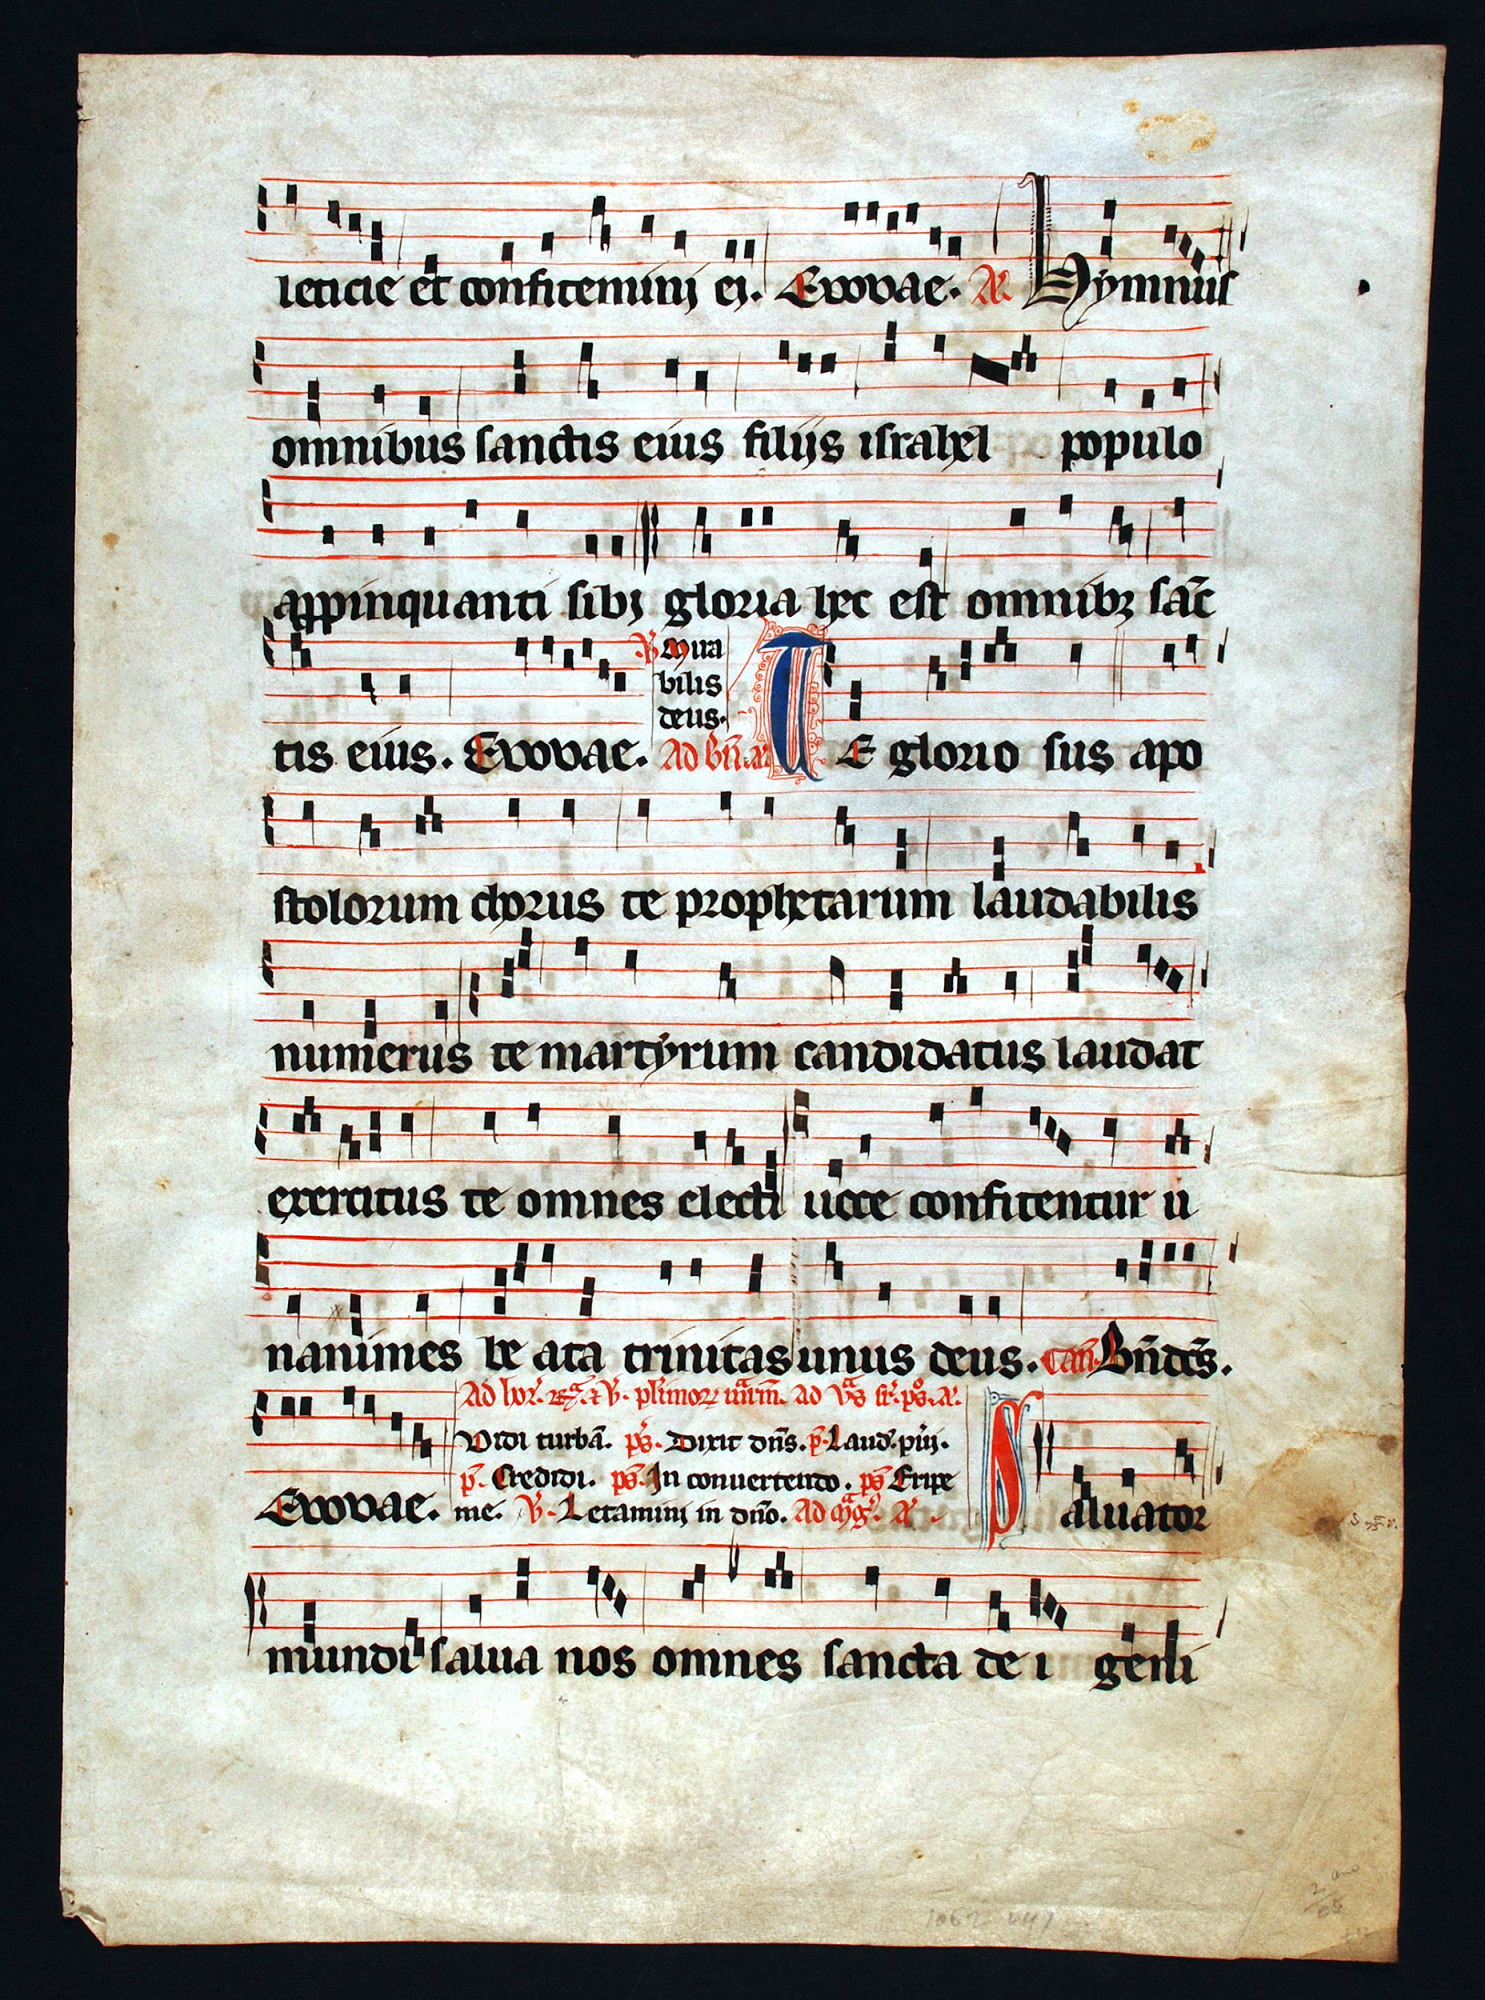 leticie et confitemini ei. Evovae. A. Hymnus
omnibus sanctis eius filijs israhel populo
appinquanti sibi gloria hec est omnibꝫ sāc
tis eius. Evovae.
V. Mira
bilis
deus.
Ad bn̄. a. TE glorio sus apo
stolorum chorus te prophetarum laudabilis
numerus te martyrum candidatus laudat
exercitus te omnes electi uoce confitentur u
nanimes be ata trinitas unus deus. Can. Bn̄dcs̄.
Ad hor. et V. ad A.
Vidi turbā. ps̄. Dixit dn̄s. p̄. Laud. pūi.
p̄. Credidi. ps̄. In conuertendo. ps̄ Eripe
Evovae. me. V. Letamini in dn̄o. Ad mag. A. Saluator
mundi salua nos omnes sancta de i geni